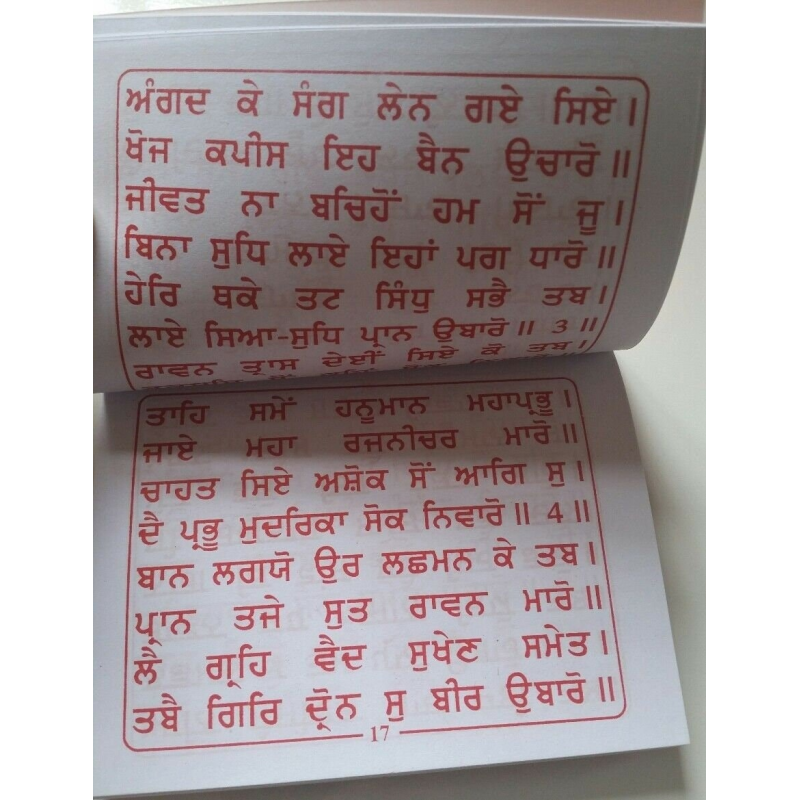 ਅੰਗਦ ਕੇ ਸੰਗ ਲੇਨ ਗਏ ਸਿਏ।
ਖੋਜ ਕਪੀਸ ਇਹ ਬੈਨ ਉਚਾਰੋ॥
ਜੀਵਤ ਨਾ ਬਚਿਹੋਂ ਹਮ ਸੋਂ ਜੂ।
ਬਿਨਾ ਸੁਧਿ ਲਾਏ ਇਹਾਂ ਪਗ ਧਾਰੋ॥
ਹੇਰਿ ਥਕੇ ਤਟ ਸਿੰਧੁ ਸਭੈ ਤਬ।
ਲਾਏ ਸਿਆ-ਸੁਧਿ ਪ੍ਰਾਨ ਉਬਾਰੋ॥ 3 ॥
ਰਾਵਨ ਤ੍ਰਾਸ ਦੇਈਂ ਸਿਏ ਕੋ ਤਬ।
ਤਾਹਿ ਸਮੇਂ ਹਨੂਮਾਨ ਮਹਾਪ੍ਰਭੂ।
ਜਾਏ ਮਹਾ ਰਜਨੀਚਰ ਮਾਰੋ॥
ਚਾਹਤ ਸਿਏ ਅਸ਼ੋਕ ਸੋਂ ਆਗਿ ਸੁ।
ਦੈ ਪ੍ਰਭੂ ਮੁਦਰਿਕਾ ਸੋਕ ਨਿਵਾਰੋ॥ 4 ॥
ਬਾਨ ਲਗਯੋ ਉਰ ਲਛਮਨ ਕੇ ਤਬ।
ਪ੍ਰਾਨ ਤਜੇ ਸੁਤ ਰਾਵਨ ਮਾਰੋ॥
ਲੈ ਗ੍ਰਹਿ ਵੈਦ ਸੁਖੇਣ ਸਮੇਤ।
ਤਬੈ ਗਿਰਿ ਦ੍ਰੋਨ ਸੁ ਬੀਰ ਉਬਾਰੋ॥
17